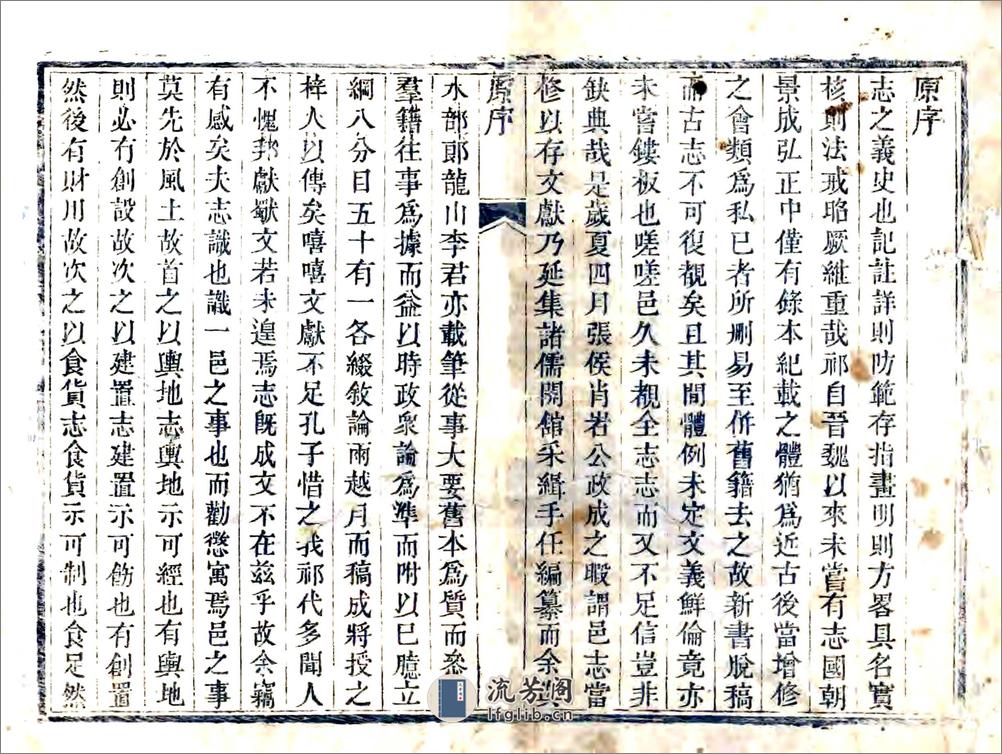 原序
志之義史也記註詳則防範存指畫明則方畧具名實
核則法戒昭厥維重哉祁自晉魏以來未嘗有志國朝
景成弘正中僅有錄本紀載之體猶爲近古後當增修
之會類爲私已者所刪易至併舊籍去之故新書脫稿
而古志不可復覩矣且其間體例未定文義鮮倫竟亦
未嘗鏤板也嗟嗟邑久未覩全志志而又不足信豈非
缺典哉是歲夏四月張侯肖若公政成之暇謂邑志當
修以存文獻乃延集諸儒開館采緝手任編纂而余與
原序
水部郎龍山李君亦載筆從事大要舊本爲質而叅
羣籍往事爲據而益以時政衆論爲準而附以已臆立
綱八分目五十有一各綴敘論兩越月而稿成將授之
梓人以傳矣嘻嘻文獻不足孔子惜之我祁代多聞人
不愧邦獻獻文若未遑焉志既成文不在兹乎故余竊
有感矣夫志識也識一邑之事也而勸懲寓焉邑之事
莫先於風土故首之以輿地志輿地示可經也有輿地
則必有創設故次之以建置志建置示可飭也有創置
然後有財用故次之以食貨志食貨示可制也食足然
流芳閣
lfglib.cn